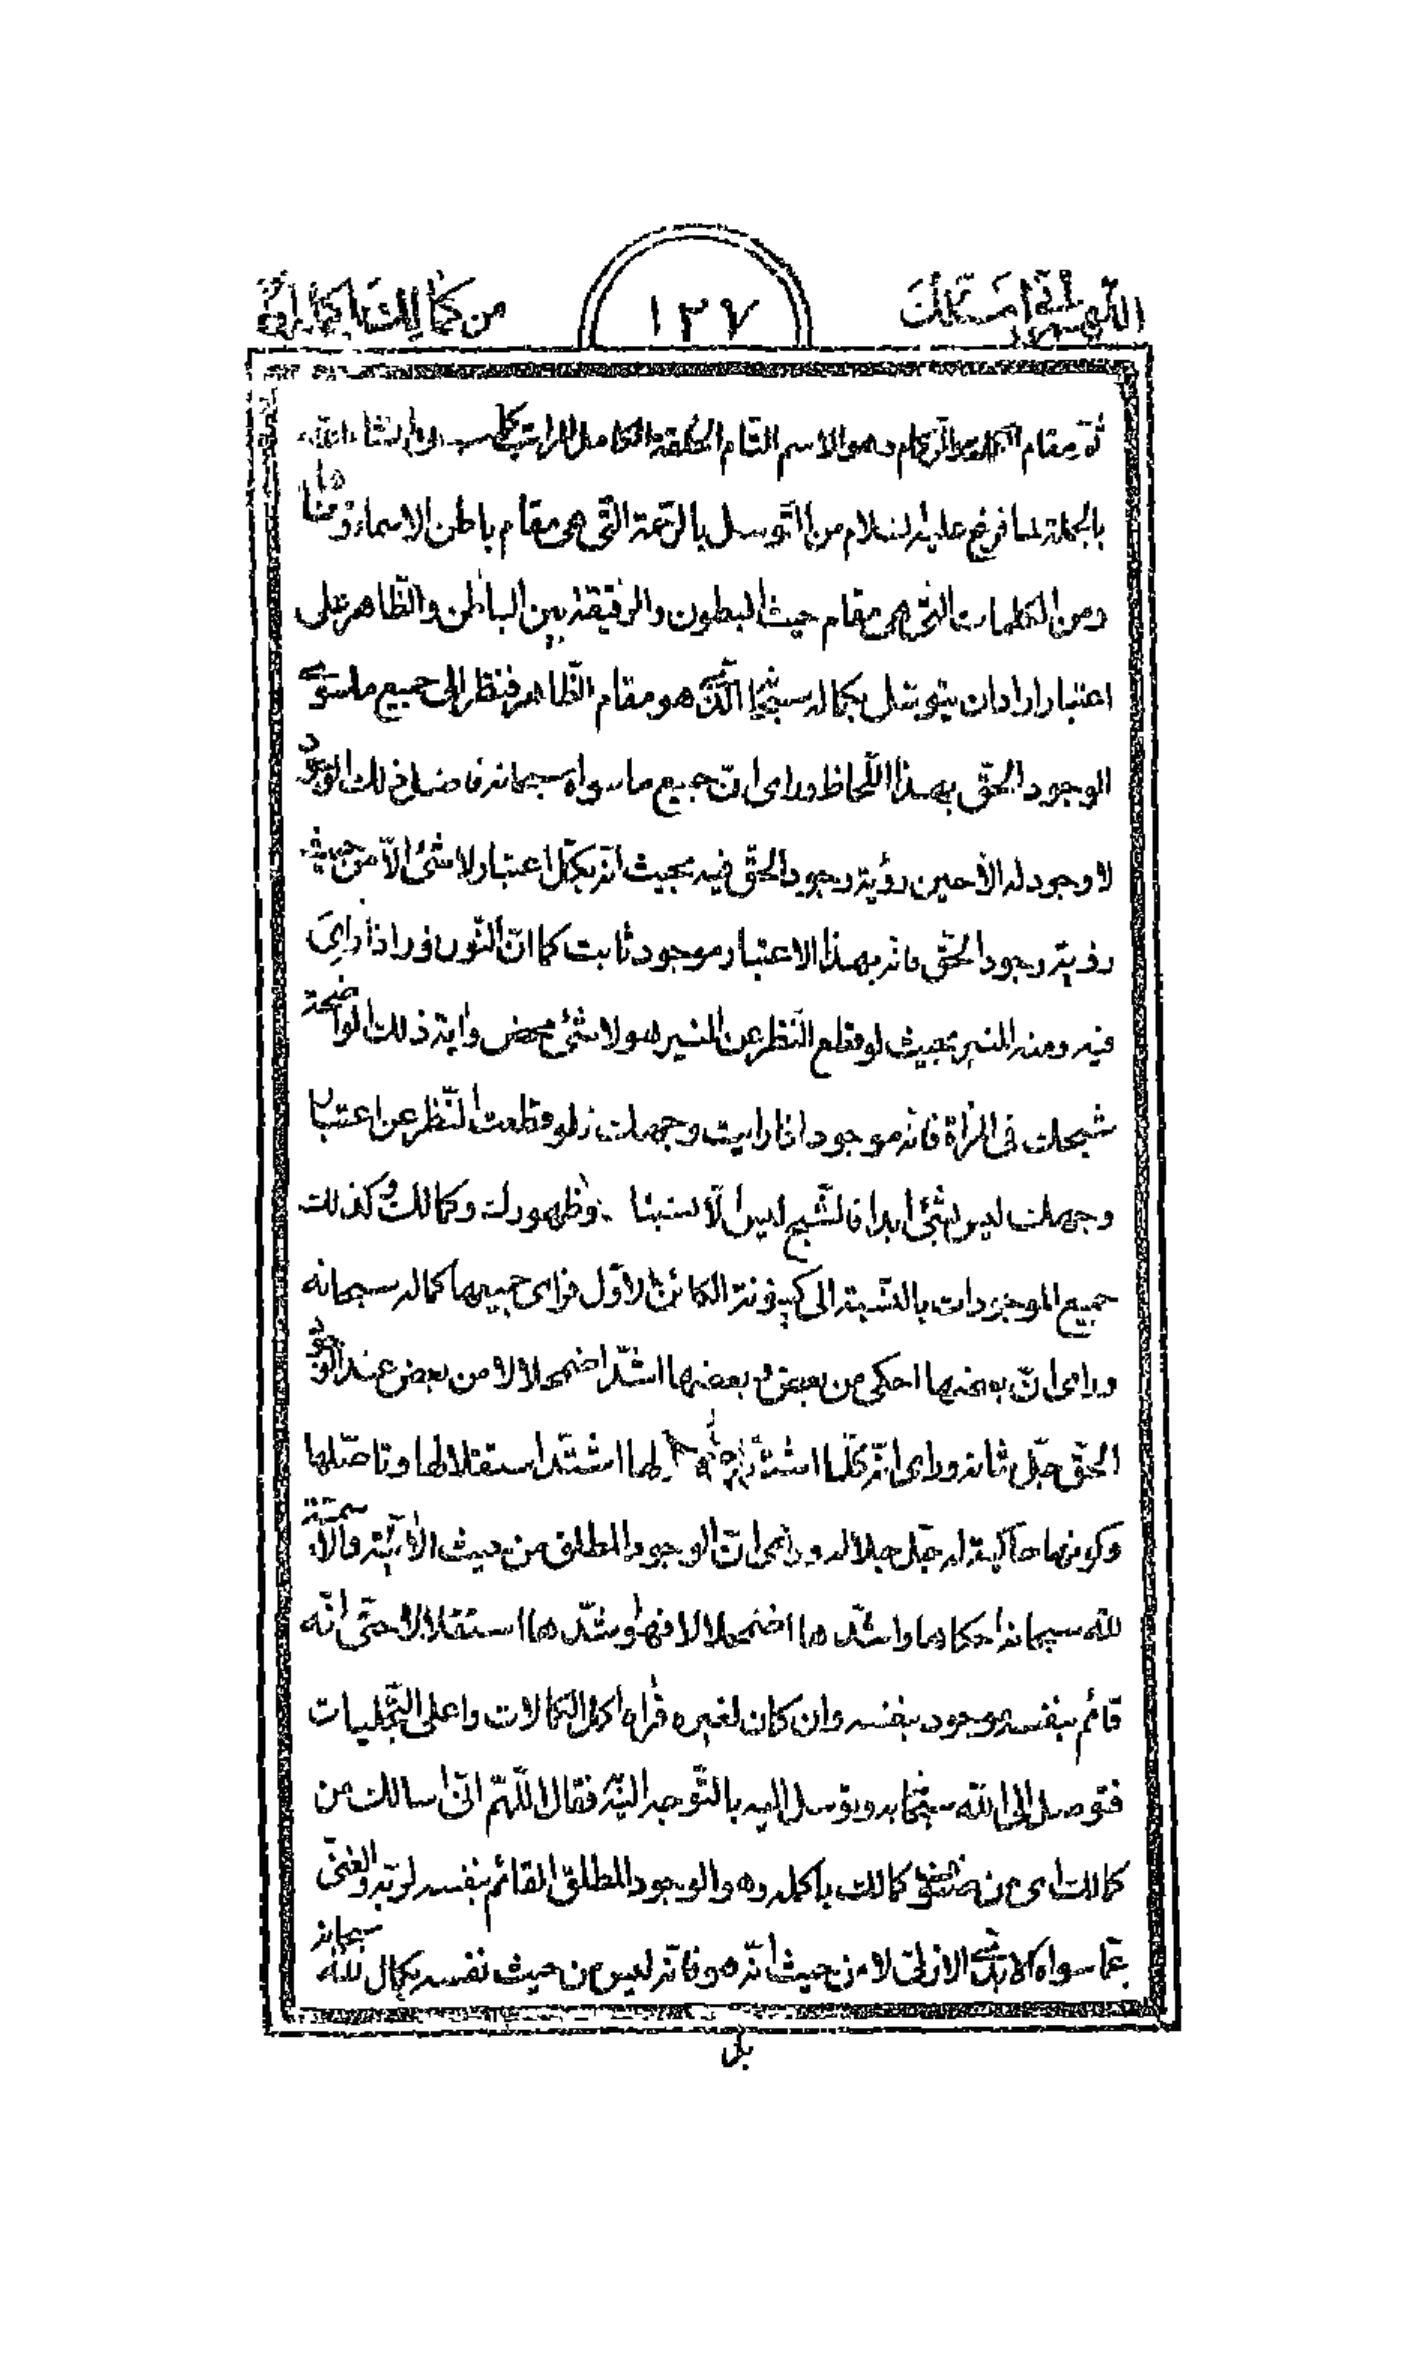 اللّهمّ انّي اسئلك
١٢٧
من كمالك باكمله
ثمّ مقام وهو الاسم التّام الكلمة الكامل المراتب انشاء الله
بالجملة لما فرغ عليه السلام من التّوسل بالرّحمة التّى هى مقام باطن الاسماء
ومن الكلمات التّى هى مقام حيث البطون والرقيقة بين الباطن والظّاهر على
اعتبار اراد ان يتوسّل بكماله سبحانه الّذى هو مقام الظّاهر فنظر الى جميع ماسوى
الوجود الحقّ بهذا اللّحاظ وراى انّ جميع ما سواه سبحانه ذلك الوجود
لا وجود له الّا حين رؤية وجود الحقّ فيه بحيث انّه بكلّ اعتبار لا شئ الّا من حيث
رؤية وجود الحقّ فانّه بهذا الاعتبار موجود ثابت كما انّ النّور نور اذا رأى
فيه ومنه المنير بحيث لو قطع النّظر عن المنير هو لا شئ محض واية ذلك الواضحة
شبحك فى المرآة فانّه موجود اذا رايت وجهك ولو قطعت النّظر عن اعتبار
وجهك ليس بشئ ابدا فالشّبح ليس الّا وظهورك وكمالك وكذلك
جميع الموجودات بالنّسبة الى كينونة الكائن الاوّل فراى جميعها كماله سبحانه
وراى انّ بعضها احكى من بعض وبعضها اشدّ اضمحلالا من بعض عند الوجود
الحقّ جلّ شانه وراى انّه كلّما اشتدّ لها اشتدّ استقلالها وتاصّلها
وكونها حاكية له جلّ جلاله وراى انّ الوجود المطلق من حيث الآيتيّة والاسميّة
للّه سبحانه احكاها واشدّها اضمحلالا فهو اشدّها استقلالا حتّى انّه
قائم بنفسه موجود بنفسه وان كان لغيره فراه اكمل الكمالات واعلى التّجليات
فتوصل الى اللّه سبحانه به وتوسل اليه بالتّوجه اليه فقال اللّهمّ انّى اسالك من
كمالك اى من كمالك باكمله وهو الوجود المطلق القائم بنفسه لربّه والغنىّ
عمّا سواه الابدىّ الازلىّ لا من حيث انّه هو فانّه ليس من حيث نفسه بكمال للّه سبحانه
بل